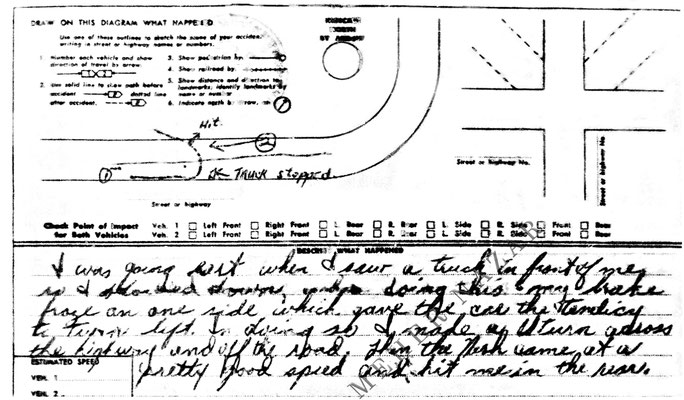 DRAW ON THIS DIAGRAM WHAT HAPPENED
Use one of these outlines to sketch the scene of your accident,
writing in street or highway names or numbers.
1. Number each vehicle and show direction of travel by arrow.
2. Use solid line to show path before accident dotted line after accident.
3. Show pedestrian by:
4. Show railroad by:
5. Show distance and direction to landmarks, identify landmarks by name or number
6. Indicate north by arrow, as
INDICATE NORTH BY ARROW
Hit
2
1
TRUCK stopped
Street or highway
Street or highway No.
Street or highway No.
Check Point of Impact for Both Vehicles
Veh. 1 Left Front Right Front L. Rear R. Rear L. Side R. Side Front Rear
Veh. 2 Left Front Right Front L. Rear R. Rear L. Side R. Side Front Rear
DESCRIBE WHAT HAPPENED
I was going when I saw a truck in front of me
so I slowed down, doing this my brake
froze on one side which gave the car the
to turn left. In doing so I made a Uturn across
the highway and off the road. came at a
pretty good speed and hit me in the rear.
ESTIMATED SPEED
VEH. 1
VEH. 2